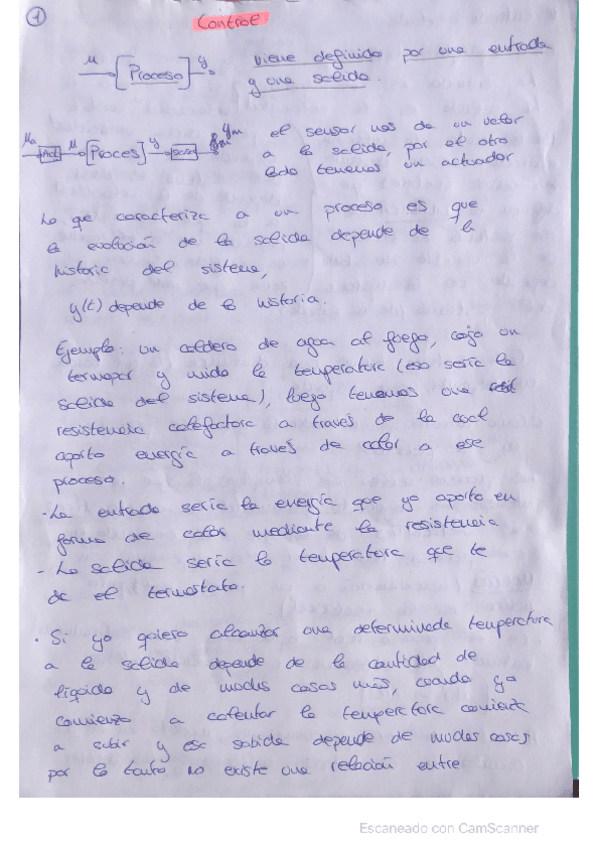 1
Control
u [Proceso] y viene definido por una entrada
y una salida.
ua Act u [Proces] y sensor ym el sensor nos da un valor
a la salida, por el otro
lado tenemos un actuador
Lo que caracteriza a un proceso es que
la evolución de la salida depende de la
historia del sistema,
y(t) depende de la historia.
Ejemplo: un caldero de agua al fuego, cojo un
termopar y mido la temperatura (eso sería la
salida del sistema), luego tenemos una
resistencia calefactora a través de la cual
aporto energía a través de calor a ese
proceso.
- La entrada sería la energía que yo aporto en
forma de calor mediante la resistencia
- La salida sería la temperatura que te
da el termostato.
· Si yo quiero alcanzar una determinada temperatura
a la salida depende de la cantidad de
líquido y de muchas cosas más, cuando yo
comienzo a calentar la temperatura comienza
a subir y esa salida depende de muchas cosas
por lo tanto no existe una relación entre
Escaneado con CamScanner